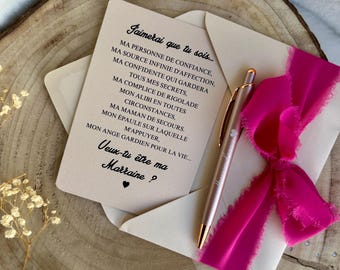 J'aimerai que tu sois...
MA PERSONNE DE CONFIANCE,
MA SOURCE INFINIE D'AFFECTION,
MA CONFIDENTE QUI GARDERA
TOUS MES SECRETS,
MA COMPLICE DE RIGOLADE
MON ALIBI EN TOUTES
CIRCONSTANCES,
MA MAMAN DE SECOURS,
MON ÉPAULE SUR LAQUELLE
M'APPUYER,
MON ANGE GARDIEN POUR LA VIE...
Veux-tu être ma
Marraine ?